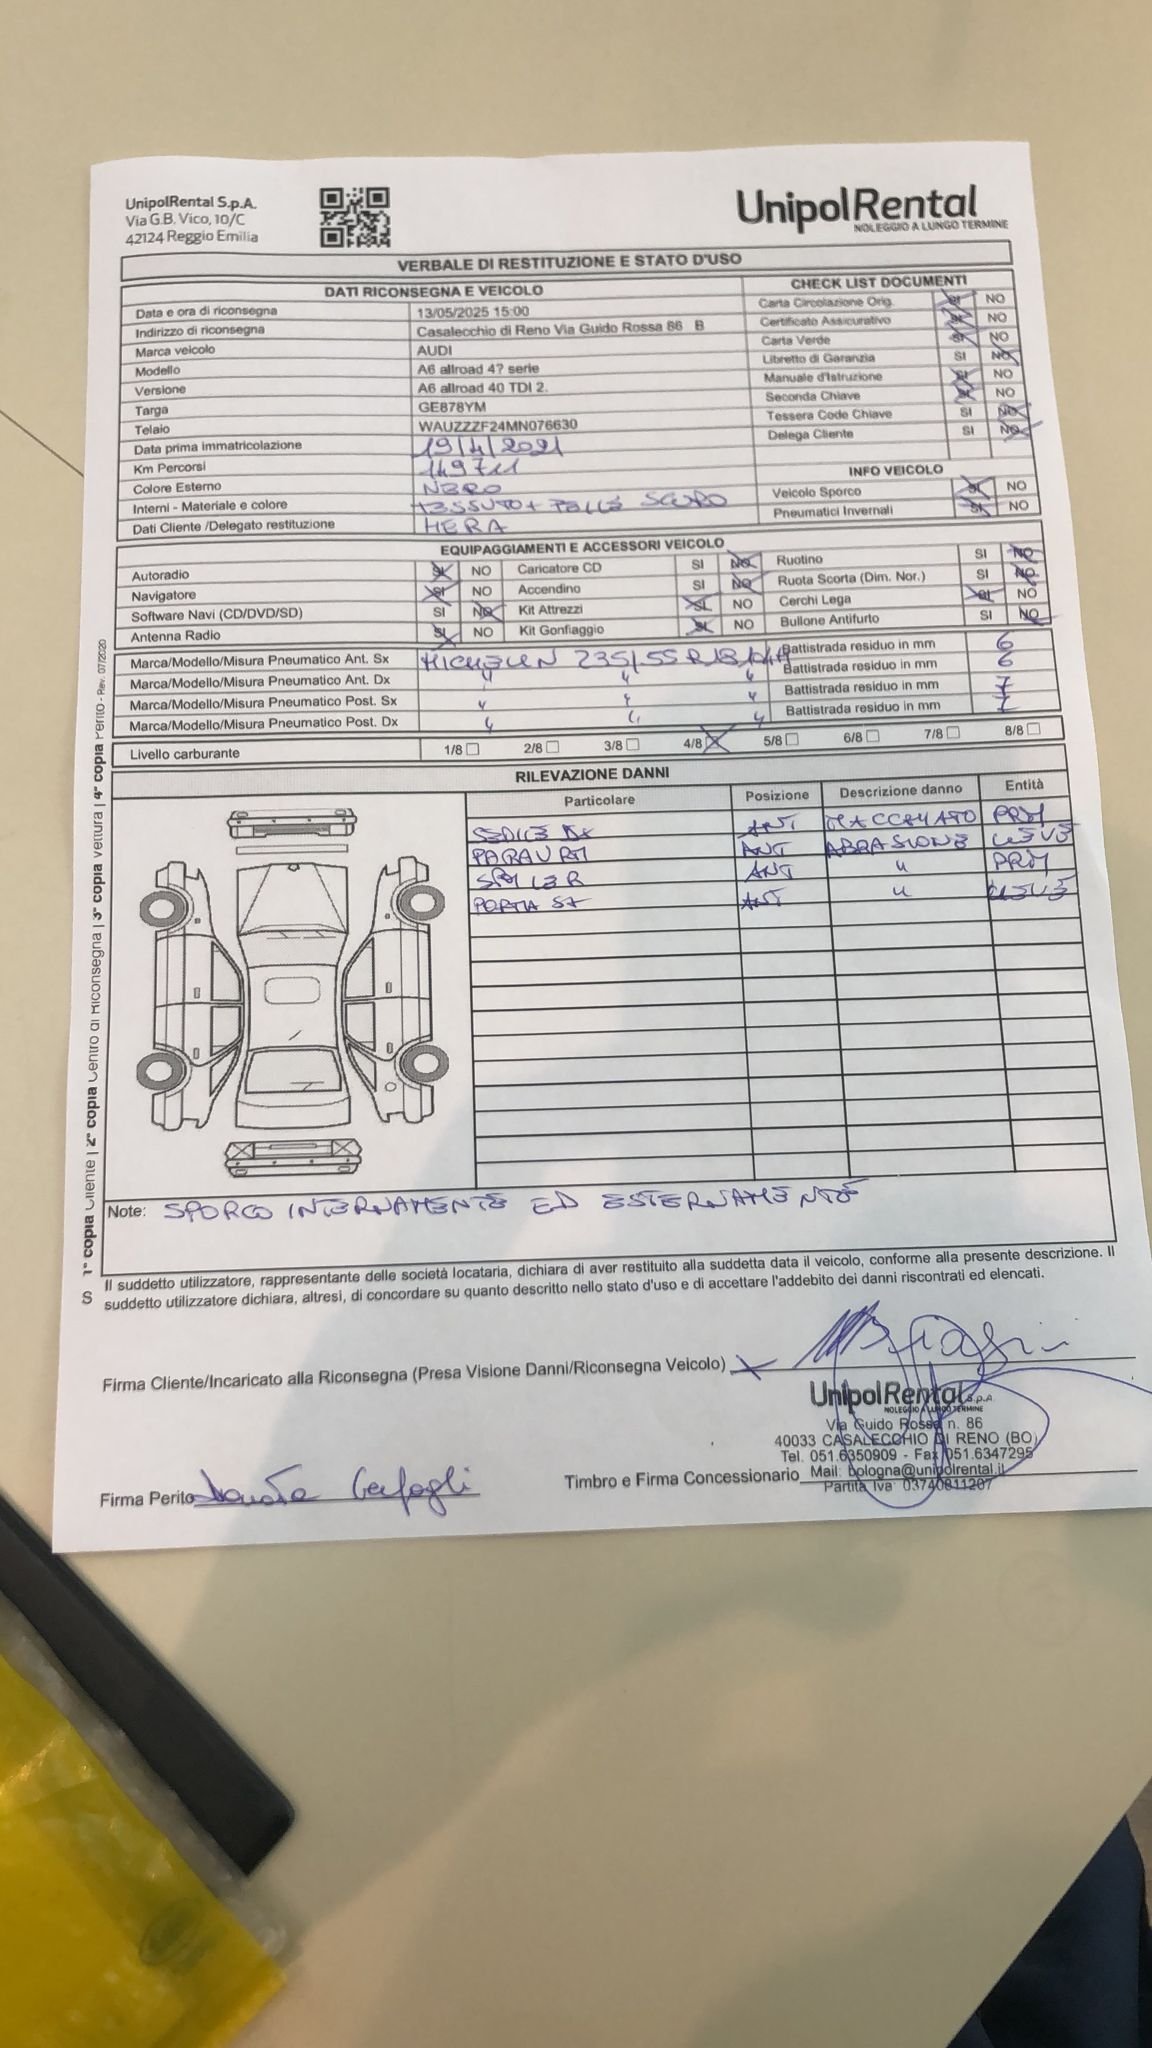 UnipolRental S.p.A.
Via G.B. Vico, 10/C
42124 Reggio Emilia
UnipolRental
NOLEGGIO A LUNGO TERMINE
VERBALE DI RESTITUZIONE E STATO D'USO
DATI RICONSEGNA E VEICOLO
Data e ora di riconsegna 13/05/2025 15:00
Indirizzo di riconsegna Casalecchio di Reno Via Guido Rossa 86 B
Marca veicolo AUDI
Modello A6 allroad 4? serie
Versione A6 allroad 40 TDI 2.
Targa GE878YM
Telaio WAUZZZF24MN076630
Data prima immatricolazione 19/4/2021
Km Percorsi 149711
Colore Esterno NERO
Interni - Materiale e colore TESSUTO + PELLE SCURO
Dati Cliente /Delegato restituzione HERA
CHECK LIST DOCUMENTI
Carta Circolazione Orig. SI NO
Certificato Assicurativo SI NO
Carta Verde SI NO
Libretto di Garanzia SI NO
Manuale d'Istruzione SI NO
Seconda Chiave SI NO
Tessera Code Chiave SI NO
Delega Cliente SI NO
INFO VEICOLO
Veicolo Sporco SI NO
Pneumatici Invernali SI NO
EQUIPAGGIAMENTI E ACCESSORI VEICOLO
Autoradio SI NO Caricatore CD SI NO Ruotino SI NO
Navigatore SI NO Accendino SI NO Ruota Scorta (Dim. Nor.) SI NO
Software Navi (CD/DVD/SD) SI NO Kit Attrezzi SI NO Cerchi Lega SI NO
Antenna Radio SI NO Kit Gonfiaggio SI NO Bullone Antifurto SI NO
Marca/Modello/Misura Pneumatico Ant. Sx MICHELIN 235/55 R18 Battistrada residuo in mm 6
Marca/Modello/Misura Pneumatico Ant. Dx " " " Battistrada residuo in mm 6
Marca/Modello/Misura Pneumatico Post. Sx " " " Battistrada residuo in mm 7
Marca/Modello/Misura Pneumatico Post. Dx " " " Battistrada residuo in mm 7
Livello carburante 1/8 2/8 3/8 4/8 5/8 6/8 7/8 8/8
RILEVAZIONE DANNI
Particolare Posizione Descrizione danno Entità
SEDILE DX ANT MACCHIATO
PARAURTI ANT ABRASIONE LIEVE
SPOILER ANT "
PORTA SX ANT " LIEVE
Note: SPORCO INTERNAMENTE ED ESTERNAMENTE
Il suddetto utilizzatore, rappresentante delle società locataria, dichiara di aver restituito alla suddetta data il veicolo, conforme alla presente descrizione. Il
suddetto utilizzatore dichiara, altresì, di concordare su quanto descritto nello stato d'uso e di accettare l'addebito dei danni riscontrati ed elencati.
Firma Cliente/Incaricato alla Riconsegna (Presa Visione Danni/Riconsegna Veicolo)
UnipolRental S.p.A.
NOLEGGIO A LUNGO TERMINE
Via Guido Rossa n. 86
40033 CASALECCHIO DI RENO (BO)
Tel. 051.6350909 - Fax 051.6347295
Timbro e Firma Concessionario Mail: bologna@unipolrental.it
Partita Iva 03740811207
Firma Perito
1° copia Cliente | 2° copia Centro di Riconsegna | 3° copia vettura | 4° copia Perito - Rev. 07/2020
S